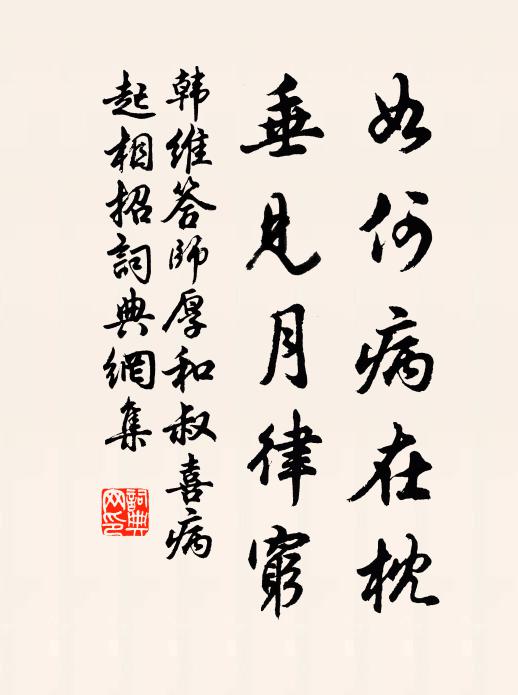 如何病在枕
垂見月律窮
韩維答師厚和叔喜病
起相招詞典網集
詞典网印